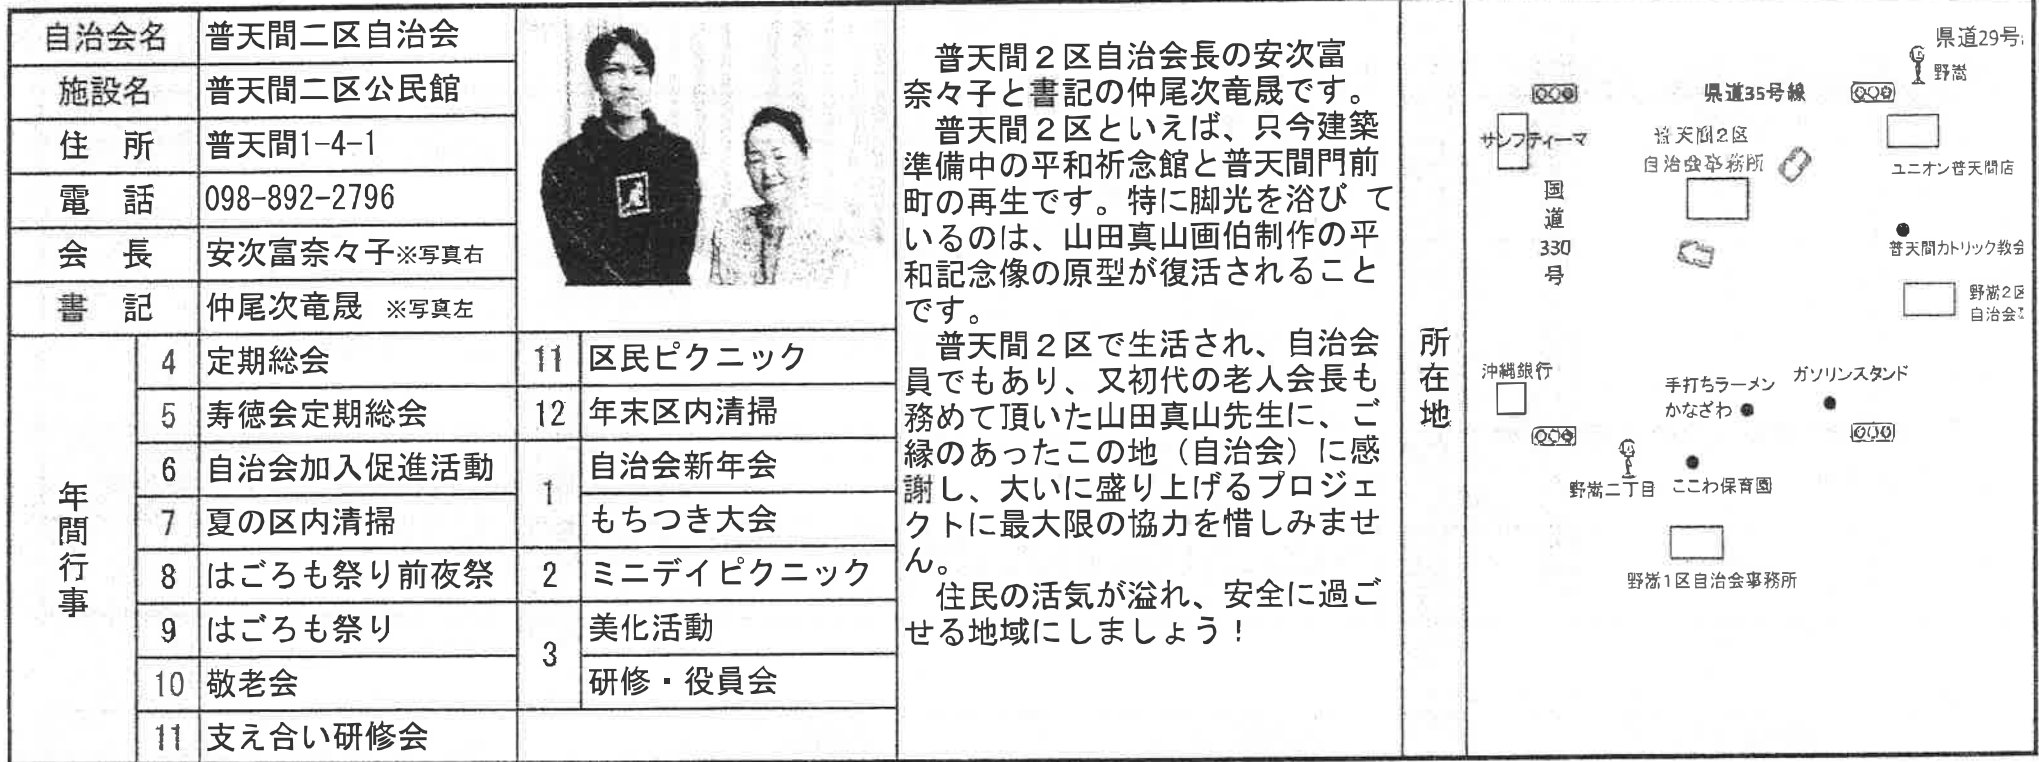 自治会名 普天間二区自治会
施設名 普天間二区公民館
住所 普天間1-4-1
電話 098-892-2796
会長 安次富奈々子※写真右
書記 仲尾次竜晟 ※写真左
年間行事
4 定期総会
5 寿徳会定期総会
6 自治会加入促進活動
7 夏の区内清掃
8 はごろも祭り前夜祭
9 はごろも祭り
10 敬老会
11 支え合い研修会
11 区民ピクニック
12 年末区内清掃
1 自治会新年会
もちつき大会
2 ミニデイピクニック
3 美化活動
研修・役員会
普天間2区自治会長の安次富
奈々子と書記の仲尾次竜晟です。
普天間2区といえば、只今建築
準備中の平和祈念館と普天間門前
町の再生です。特に脚光を浴び て
いるのは、山田真山画伯制作の平
和記念像の原型が復活されること
です。
普天間2区で生活され、自治会
員でもあり、又初代の老人会長も
務めて頂いた山田真山先生に、ご
縁のあったこの地（自治会）に感
謝し、大いに盛り上げるプロジェ
クトに最大限の協力を惜しみませ
ん。
住民の活気が溢れ、安全に過ご
せる地域にしましょう！
所在地
県道29号
野嵩
県道35号線
サンフティーマ
普天間2区
自治会事務所
ユニオン普天間店
国道330号
普天間カトリック教会
野嵩2区
自治会
沖縄銀行
手打ちラーメン
かなざわ
ガソリンスタンド
野嵩二丁目
ここわ保育園
野嵩1区自治会事務所